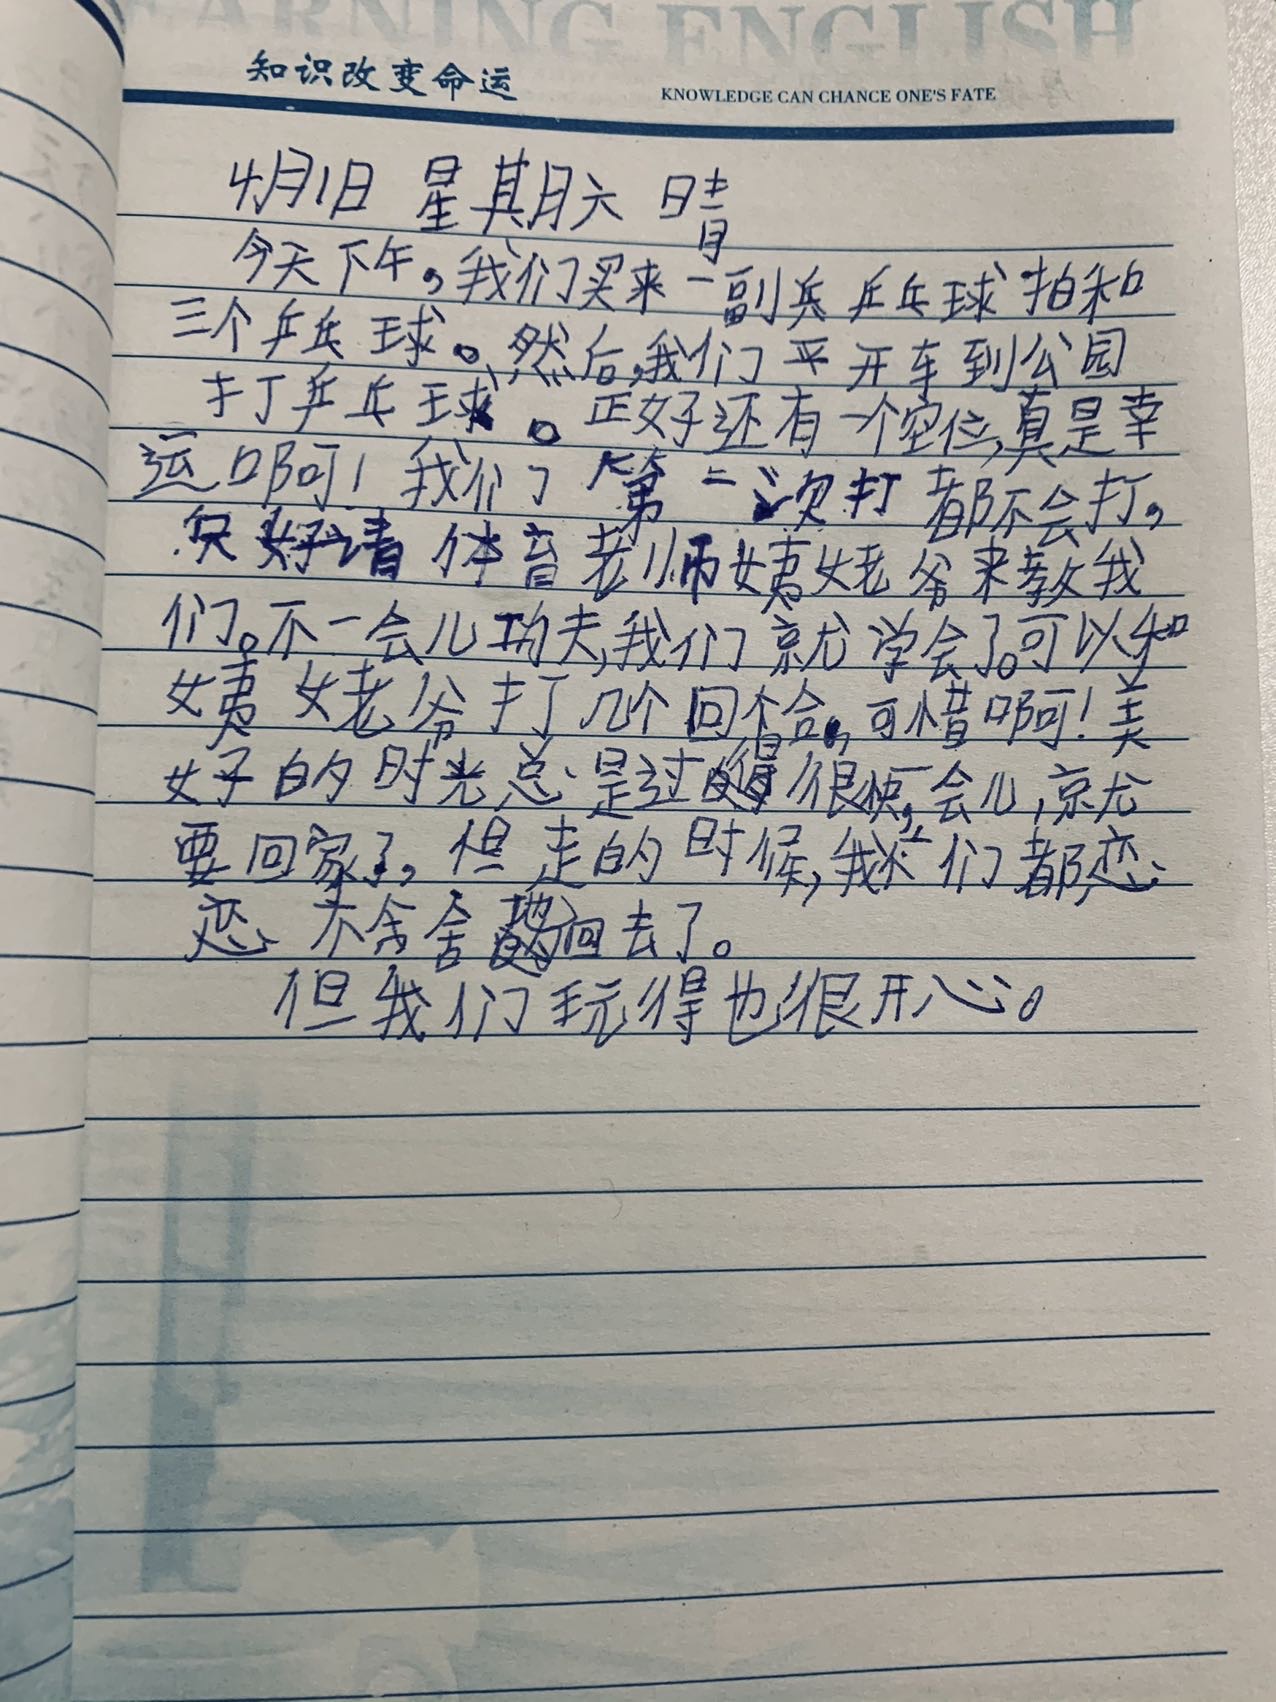 LEARNING ENGLISH
知识改变命运
KNOWLEDGE CAN CHANCE ONE'S FATE
4月1日 星期六 晴
今天下午，我们买来一副兵乒乓球拍和
三个乒乓球。然后，我们平开车到公园
打乒乓球。正好还有一个空位，真是幸
运啊！我们第一次打都不会打，
只好请体育老师姨姥爷来教我
们。不一会儿功夫，我们就学会了。可以和
姨姥爷打几个回合。可惜啊！美
好的时光总是过得很快，一会儿，就
要回家了。但走的时候，我们都恋
恋不舍舍地回去了。
但我们玩得也很开心。